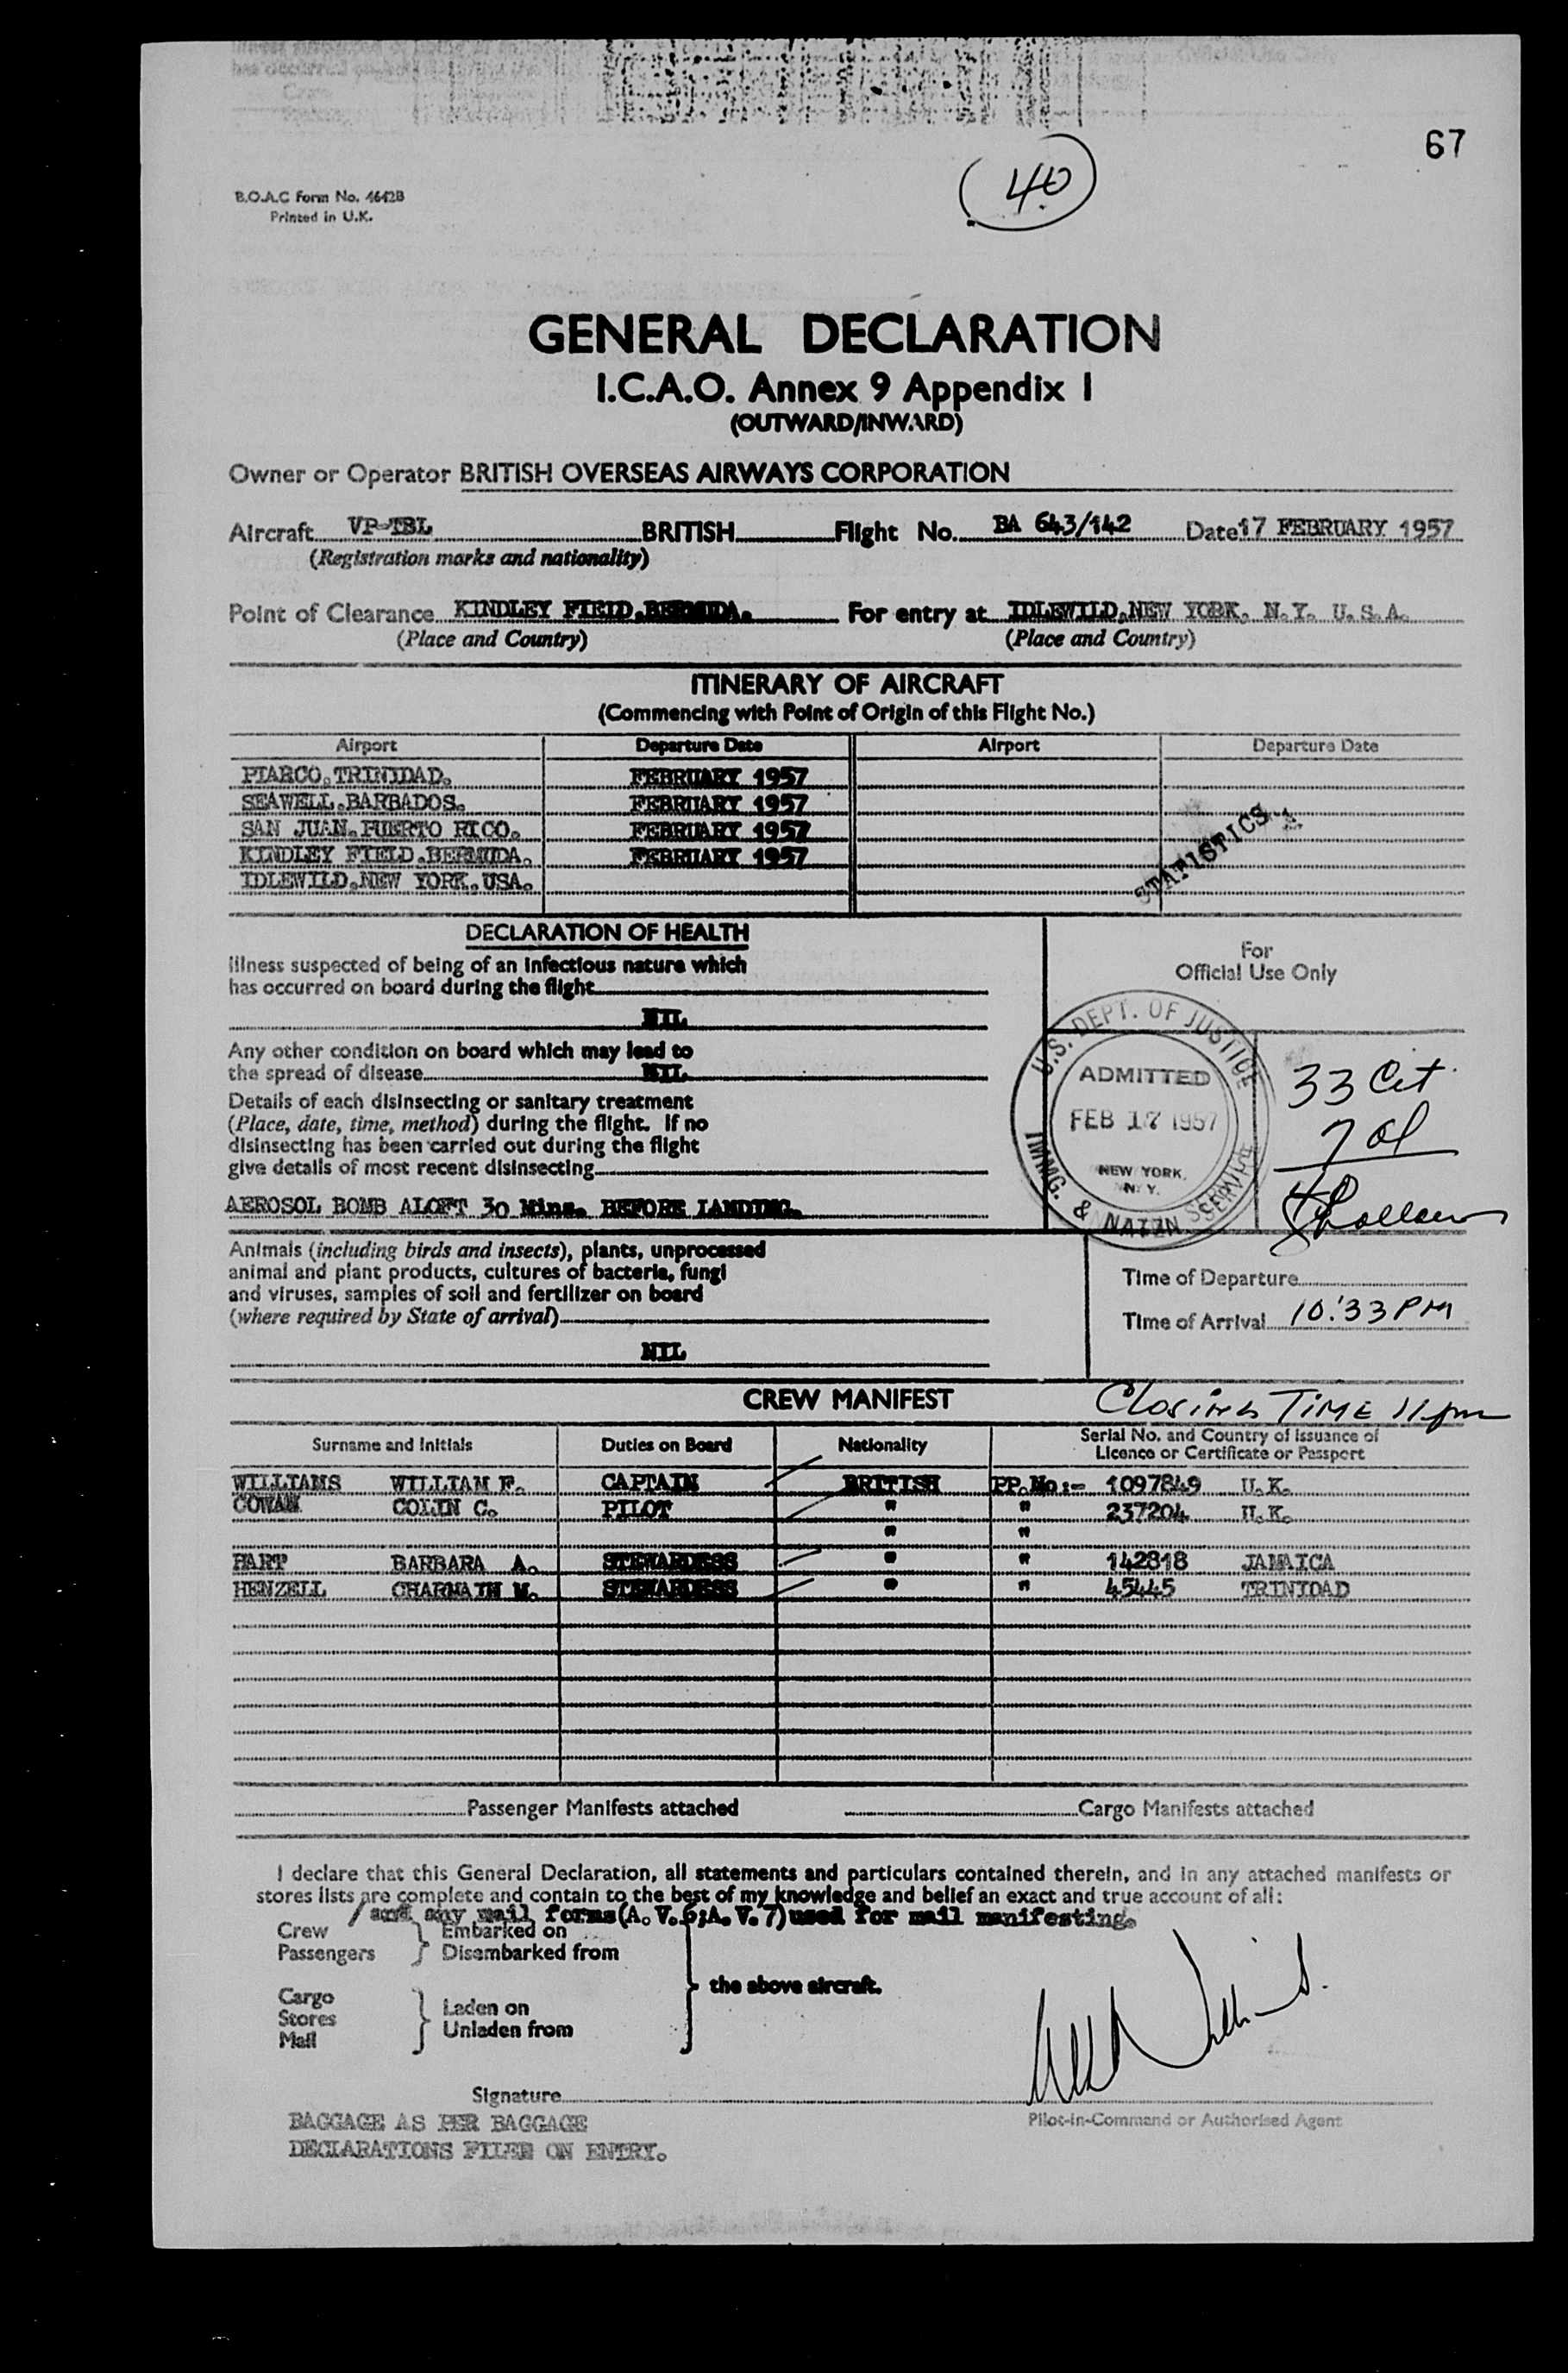 67
40
B.O.A.C Form No. 4642B
Printed in U.K.
GENERAL DECLARATION
I.C.A.O. Annex 9 Appendix I
(OUTWARD/INWARD)
Owner or Operator BRITISH OVERSEAS AIRWAYS CORPORATION
Aircraft VP-TBL BRITISH Flight No. BA 643/142 Date 17 FEBRUARY 1957
(Registration marks and nationality)
Point of Clearance KINDLEY FIELD,BERMUDA. For entry at IDLEWILD,NEW YORK, N.Y. U.S.A.
(Place and Country) (Place and Country)
ITINERARY OF AIRCRAFT
(Commencing with Point of Origin of this Flight No.)
Airport Departure Date Airport Departure Date
PIARCO,TRINIDAD. FEBRUARY 1957
SEAWELL,BARBADOS. FEBRUARY 1957
SAN JUAN,PUERTO RICO. FEBRUARY 1957
KINDLEY FIELD,BERMUDA. FEBRUARY 1957
IDLEWILD,NEW YORK,USA.
STATISTICS
DECLARATION OF HEALTH
Illness suspected of being of an infectious nature which
has occurred on board during the flight
NIL
Any other condition on board which may lead to
the spread of disease NIL
Details of each disinsecting or sanitary treatment
(Place, date, time, method) during the flight. If no
disinsecting has been carried out during the flight
give details of most recent disinsecting
AEROSOL BOMB ALOFT 30 Mins. BEFORE LANDING.
For
Official Use Only
U.S. DEPT. OF JUSTICE
ADMITTED
FEB 17 1957
NEW YORK,
N. Y.
IMMG. & NATZN SERVICE
33 Cit
7 al
Animals (including birds and insects), plants, unprocessed
animal and plant products, cultures of bacteria, fungi
and viruses, samples of soil and fertilizer on board
(where required by State of arrival)
NIL
Time of Departure
Time of Arrival 10:33 PM
CREW MANIFEST
Closing TIME 11 pm
Surname and Initials Duties on Board Nationality Serial No. and Country of Issuance of
Licence or Certificate or Passport
WILLIAMS WILLIAM F. CAPTAIN BRITISH PP.No:- 1097849 U.K.
COWAN COLIN C. PILOT " " 237204 U.K.
" "
HART BARBARA A. STEWARDESS " " 142818 JAMAICA
HENZELL CHARMAIN M. STEWARDESS " " 45445 TRINIDAD
Passenger Manifests attached Cargo Manifests attached
I declare that this General Declaration, all statements and particulars contained therein, and in any attached manifests or
stores lists are complete and contain to the best of my knowledge and belief an exact and true account of all:
/and any mail forms(A.V.6;A.V.7)used for mail manifesting.
Crew } Embarked on
Passengers } Disembarked from
the above aircraft.
Cargo
Stores } Laden on
Mail } Unladen from
Signature
Pilot-in-Command or Authorised Agent
BAGGAGE AS PER BAGGAGE
DECLARATIONS FILED ON ENTRY.